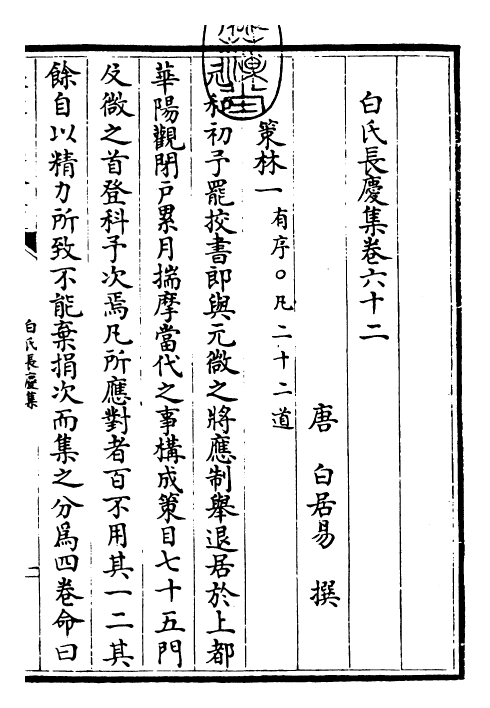 白氏長慶集卷六十二
唐 白居易 撰
策林一 有序○凡二十二道
元和初予罷挍書郎與元微之將應制舉退居於上都
華陽觀閉戸累月揣摩當代之事構成策目七十五門
及微之首登科予次焉凡所應對者百不用其一二其
餘自以精力所致不能棄捐次而集之分爲四卷命曰
白氏長慶集